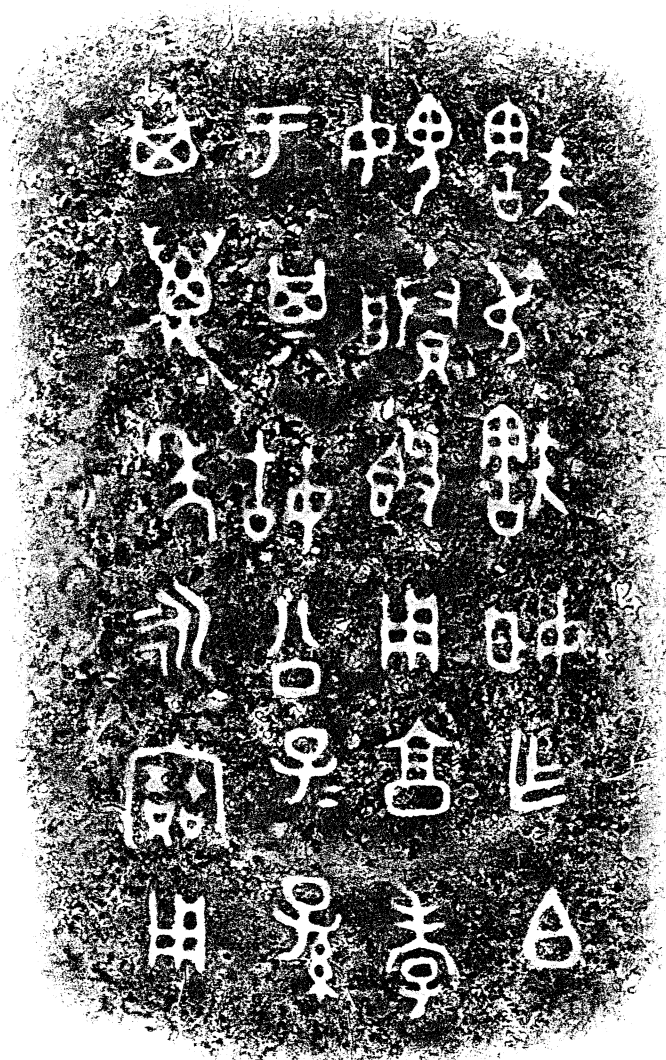 㝬叔㝬姬乍白
媿賸𣪘用亯孝
于其姑公子=孫=
其萬年永寶用